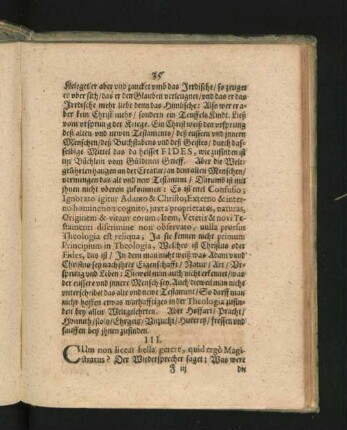 85
krieget er aber vnd zancket vmb das Irrdische / so zeuget
er vber sich / das er den Glauben verleugnet / vnd das er das
Irrdische mehr liebe denn das Himlische: Also wer er a-
ber kein Christ mehr / sondern ein Teuffels Kindt. Ließ
vom vrsprung der Kriege. Ein Christ weiß den vrsprung
deß alten vnd newen Testaments / deß eussern vnd innern
Menschen / deß Buchstabens vnd des Geistes / durch das-
selbige Mittel das da heisset FIDES, wie zufinden ist
im Büchlein vom Güldenen Grieff. Aber die Welt-
gelehrten hangen an der Creatur / an dem alten Menschen /
vermengen das alt vnd new Testament / Darumb ist mit
ihnen nicht vberein zukommen: Es ist eitel Confusio;
Ignorato igitur Adamo & Christo, Externo & inter-
no homine non cognito, juxta proprietates, naturas,
Originem & vitam eorum: Item, Veteris & novi Te-
stamenti discrimine non observato, nulla prorsus
Theologia est reliqua; Ja sie kennen nicht primum
Principium in Theologia, Welches ist Christus oder
Fides, diß ist / In dem man nicht weiß was Adam vnd
Christus sey nach ihrer Eigenschafft / Natur / Art / Vr-
sprung vnd Leben: Dieweil man auch nicht erkennet / was
der eussere vnd innere Mensch sey. Auch dieweil man nicht
vnterscheidet das alte vnd newe Testament / So darff man
nicht hoffen etwas warhafftiges in der Theologia zufin-
den bey allen Weltgelehrten. Aber Hoffart / Pracht /
Hochmuth / stoltz / Ehrgeitz / Vnzucht / Hurerey / fressen vnd
sauffen bey jhnen zufinden.
III.
CUm non liceat bella gerere, quid ergò Magi-
stratus? Der Wiedersprecher saget: Was were
die